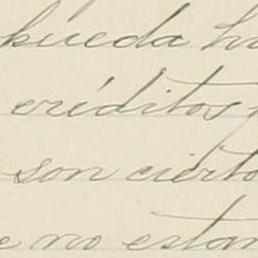 pueda ha
créditos y
son cierto
e no estan